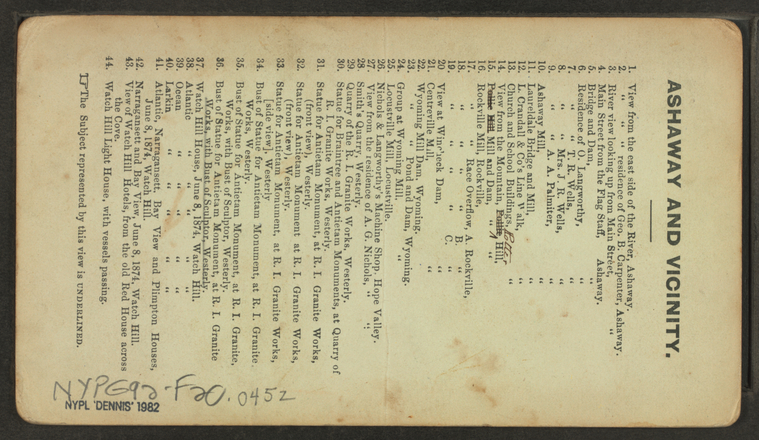 ASHAWAY AND VICINITY.
1. View from the east side of the River, Ashaway.
2. " " " residence of Geo. B. Carpenter, Ashaway.
3. River view looking up from Main Street, "
4. Main Street from the Flag Staff, Ashaway.
5. Bridge and Dam, "
6. Residence of O. Langworthy, "
7. " " T. R. Wells, "
8. " " Mrs. J. E. Wells, "
9. " " A. A. Palmiter, "
10. Ashaway Mill, "
11. Laureldale Bridge and Mill, "
12. L. Crandall & Co's Line Walk, "
13. Church and School Buildings, "
14. View from the Mountain, Hill, Potter
15. Mill and Dam, " "
16. Rockville Mill, Rockville,
17. " " Race Overflow, A. Rockville,
18. " " " B. "
19. " " " C. "
20. View at Win'heck Dam, "
21. Centreville Mill, "
22. Wyoming Mill Dam, Wyoming.
23. " Pond and Dam, Wyoming.
24. Group at Wyoming Mill, "
25. Locustville Mill, Locustville.
26. Nichols & Langworthy's Machine Shop, Hope Valley.
27. View from the residence of A. G. Nichols, "
28. Smith's Quarry, Westerly.
29. Quarry of the R. I. Granite Works, Westerly.
30. Statue for Roxanne and Antietam Monuments, at Quarry of
R. I. Granite Works, Westerly.
31. Statue for Antietam Monument, at R. I. Granite Works,
(front view), Westerly.
32. Statue for Antietam Monument at R. I. Granite Works,
(front view), Westerly.
33. Statue for Antietam Monument, at R. I. Granite Works,
[side view], Westerly
34. Bust of Statue for Antietam Monument, at R. I. Granite
Works, Westerly.
35. Bust of Statue for Antietam Monument, at R. I. Granite,
Works, with Bust of Sculptor, Westerly.
36. Bust of Statue for Antietam Monument, at R. I. Granite
Works, with Bust of Sculptor, Westerly.
37. Watch Hill House, June 8, 1874, Watch Hill.
38. Atlantic " " " "
39. Ocean " " " "
40. Larkin " " " "
41. Atlantic, Narragansett, Bay View and Plimpton Houses,
June 8, 1874, Watch Hill.
42. Narragansett and Bay View, June 8, 1874, Watch Hill.
43. View of Watch Hill Hotels, from the old Red House across
the Cove.
44. Watch Hill Light House, with vessels passing.
The Subject represented by this view is UNDERLINED.
NYPG92-F20.0452
NYPL 'DENNIS' 1982